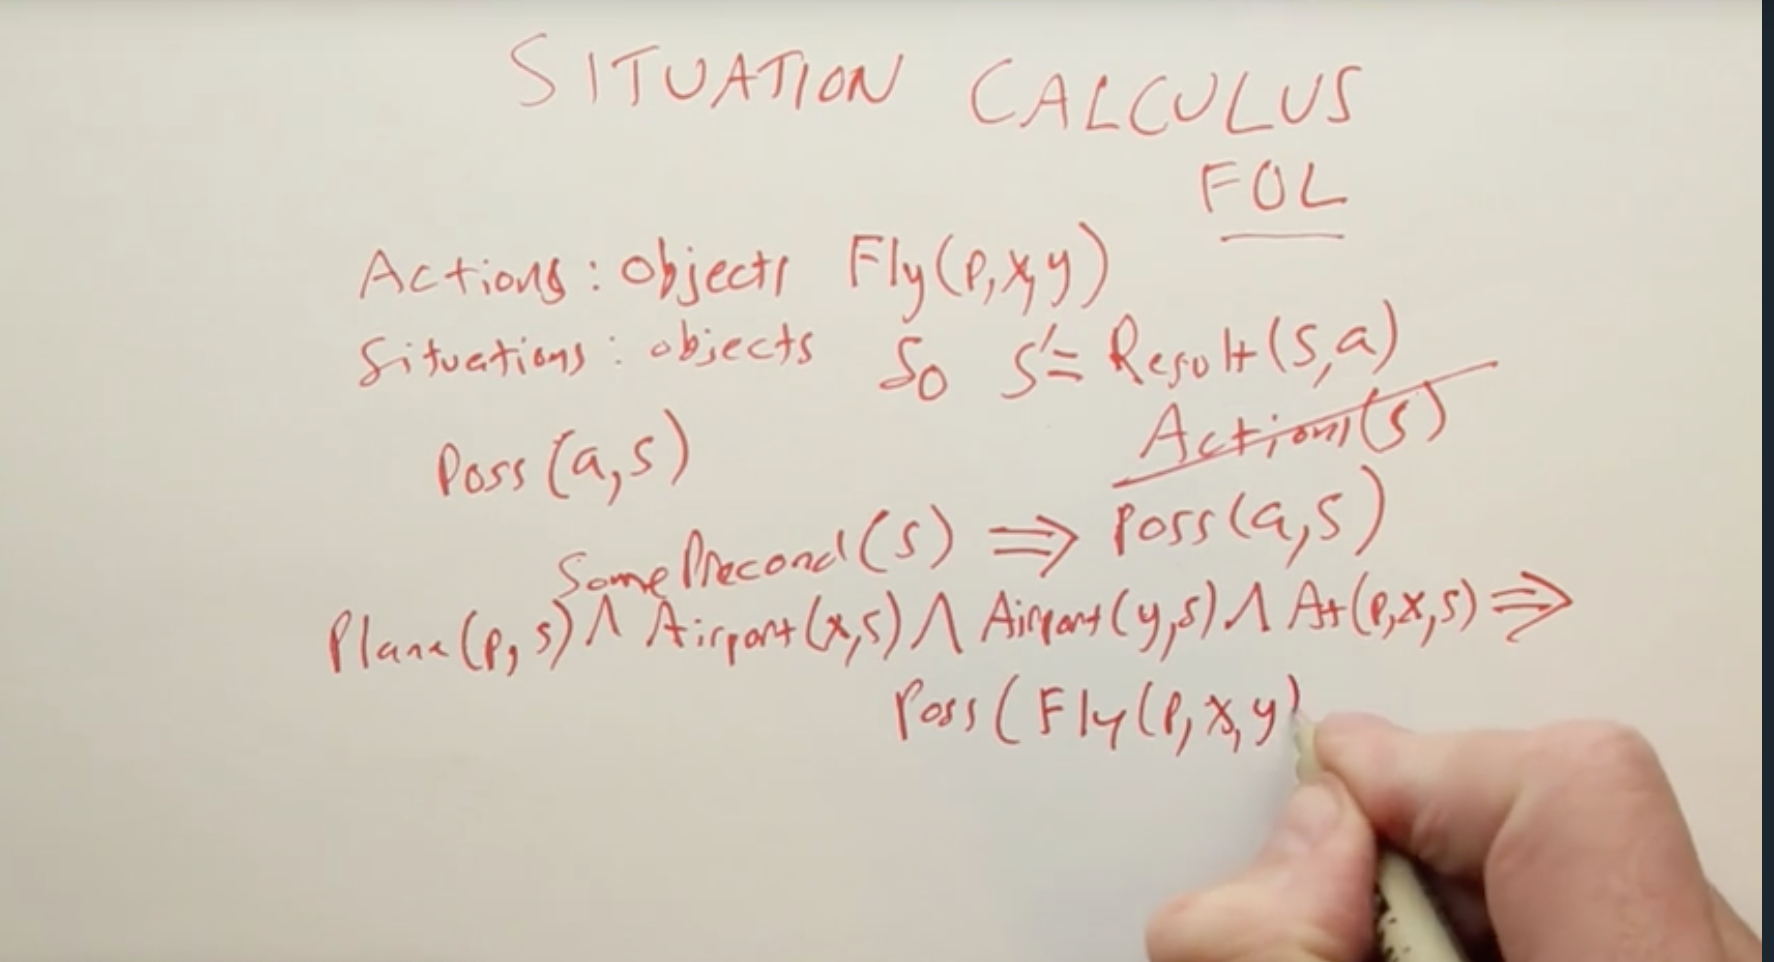 SITUATION CALCULUS
FOL
Actions: objects Fly(p,x,y)
Situations: objects S0 S'= Result(s,a)
Actions(s)
Poss(a,s)
SomePrecond(s) ⇒ Poss(a,s)
Plane(p,s) ∧ Airport(x,s) ∧ Airport(y,s) ∧ At(p,x,s) ⇒
Poss(Fly(p,x,y)